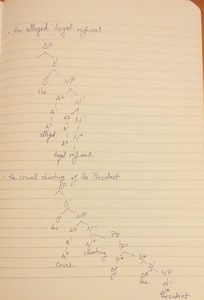 • the alleged illegal referral
DP
D'
D° NP
the AP N'
A' AP N'
A° A' N°
alleged A°
illegal referral
• the cruel shooting of the President
DP
D'
D° NP
the AP N'
A' N' PP
A° N° P'
Cruel shooting P° DP
of D'
D° NP
the N'
N°
President